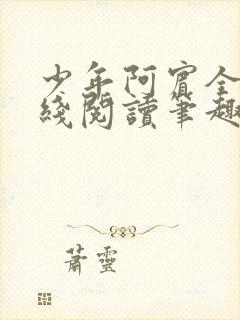 少年阿賓全
綫閱讀筆趣
蕭靈